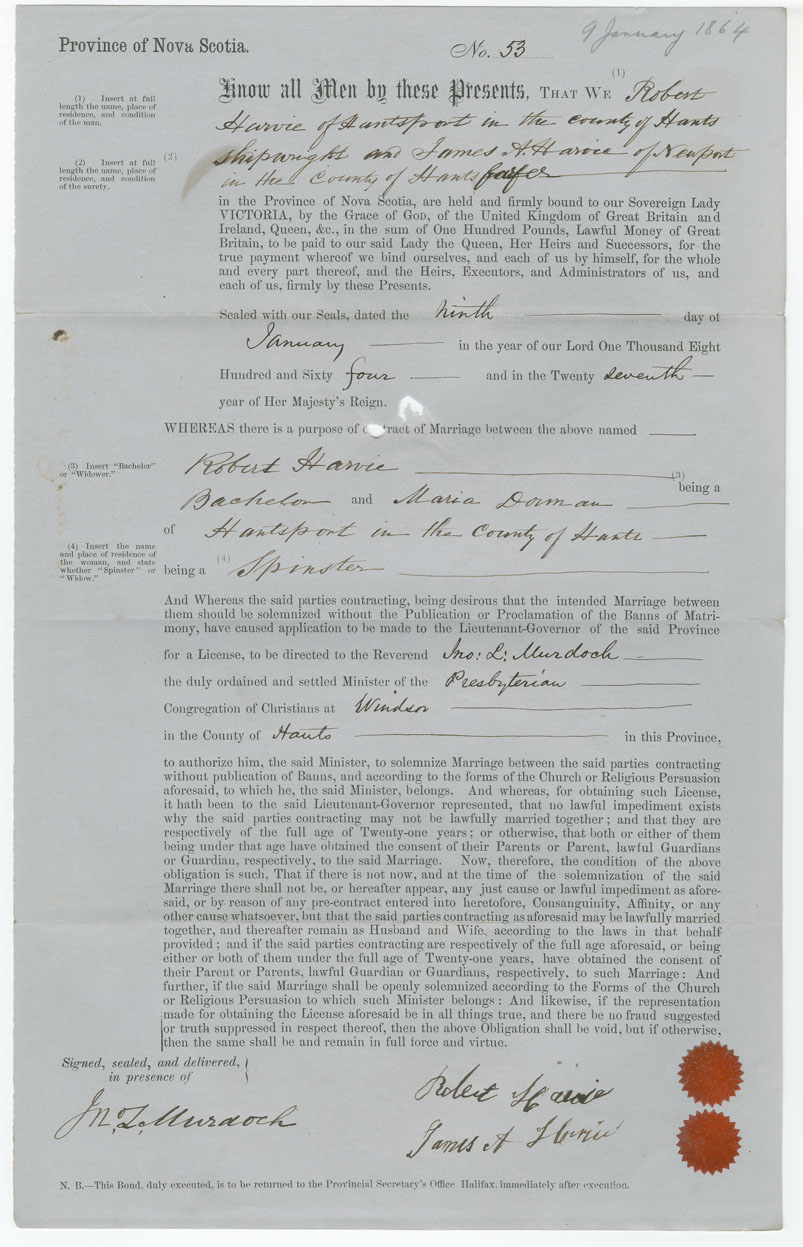 9 January 1864
Province of Nova Scotia.
No. 53
Know all Men by these Presents, THAT WE (1) Robert
Harvie of Hantsport in the county of Hants
(2) shipwright and James A. Harvie of Newport
in the County of Hants
(1) Insert at full
length the name, place of
residence, and condition
of the man.
(2) Insert at full
length the name, place of
residence, and condition
of the surety.
in the Province of Nova Scotia, are held and firmly bound to our Sovereign Lady
VICTORIA, by the Grace of God, of the United Kingdom of Great Britain and
Ireland, Queen, &c., in the sum of One Hundred Pounds, Lawful Money of Great
Britain, to be paid to our said Lady the Queen, Her Heirs and Successors, for the
true payment whereof we bind ourselves, and each of us by himself, for the whole
and every part thereof, and the Heirs, Executors, and Administrators of us, and
each of us, firmly by these Presents.
Sealed with our Seals, dated the ninth day of
January in the year of our Lord One Thousand Eight
Hundred and Sixty four and in the Twenty seventh
year of Her Majesty's Reign.
WHEREAS there is a purpose of contract of Marriage between the above named
Robert Harvie (3) being a
(3) Insert "Bachelor"
or "Widower."
Bachelor and Maria Dorman
of Hantsport in the County of Hants
(4) Insert the name
and place of residence of
the woman, and state
whether "Spinster" or
"Widow."
being a (4) Spinster
And Whereas the said parties contracting, being desirous that the intended Marriage between
them should be solemnized without the Publication or Proclamation of the Banns of Matri-
mony, have caused application to be made to the Lieutenant-Governor of the said Province
for a License, to be directed to the Reverend Jno: L: Murdoch
the duly ordained and settled Minister of the Presbyterian
Congregation of Christians at Windsor
in the County of Hants in this Province,
to authorize him, the said Minister, to solemnize Marriage between the said parties contracting
without publication of Banns, and according to the forms of the Church or Religious Persuasion
aforesaid, to which he, the said Minister, belongs. And whereas, for obtaining such License,
it hath been to the said Lieutenant-Governor represented, that no lawful impediment exists
why the said parties contracting may not be lawfully married together; and that they are
respectively of the full age of Twenty-one years; or otherwise, that both or either of them
being under that age have obtained the consent of their Parents or Parent, lawful Guardians
or Guardian, respectively, to the said Marriage. Now, therefore, the condition of the above
obligation is such, That if there is not now, and at the time of the solemnization of the said
Marriage there shall not be, or hereafter appear, any just cause or lawful impediment as afore-
said, or by reason of any pre-contract entered into heretofore, Consanguinity, Affinity, or any
other cause whatsoever, but that the said parties contracting as aforesaid may be lawfully married
together, and thereafter remain as Husband and Wife, according to the laws in that behalf
provided; and if the said parties contracting are respectively of the full age aforesaid, or being
either or both of them under the full age of Twenty-one years, have obtained the consent of
their Parent or Parents, lawful Guardian or Guardians, respectively, to such Marriage: And
further, if the said Marriage shall be openly solemnized according to the Forms of the Church
or Religious Persuasion to which such Minister belongs: And likewise, if the representation
made for obtaining the License aforesaid be in all things true, and there be no fraud suggested
or truth suppressed in respect thereof, then the above Obligation shall be void, but if otherwise,
then the same shall be and remain in full force and virtue.
Signed, sealed, and delivered,
in presence of
Jn. L. Murdoch
Robert Harvie
James A Harvie
N. B.—This Bond, duly executed, is to be returned to the Provincial Secretary's Office Halifax, immediately after execution.